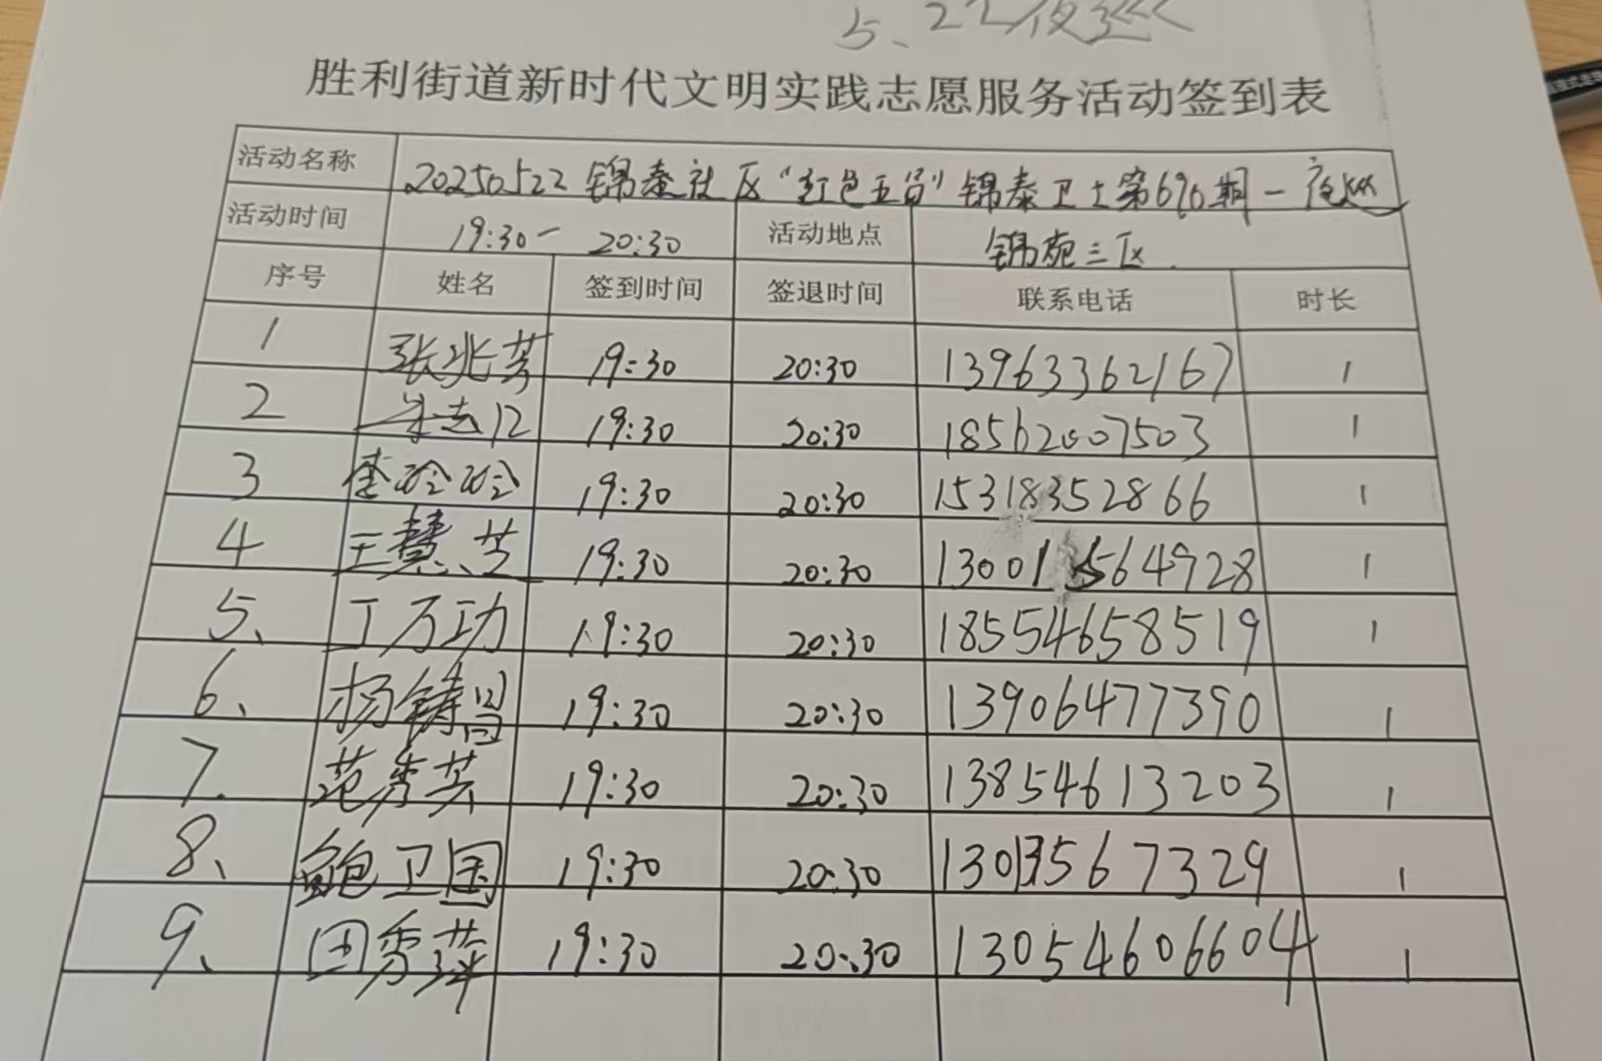 5、22夜巡
胜利街道新时代文明实践志愿服务活动签到表
活动名称 20250522 锦泰社区“红色五员”锦泰卫士第696期一夜巡
活动时间 19:30一20:30 活动地点 锦苑三区
序号 姓名 签到时间 签退时间 联系电话 时长
1 张兆芳 19:30 20:30 13963362167 1
2 19:30 20:30 18562007503 1
3 李玲玲 19:30 20:30 15318352866 1
4 王慧芝 19:30 20:30 1300 564928 1
5、 丁万功 19:30 20:30 18554658519 1
6、 杨铸昌 19:30 20:30 13906477390 1
7. 范秀芬 19:30 20:30 13854613203 1
8、 鲍卫国 19:30 20:30 1 567329 1
9、 田秀萍 19:30 20:30 13054606604 1